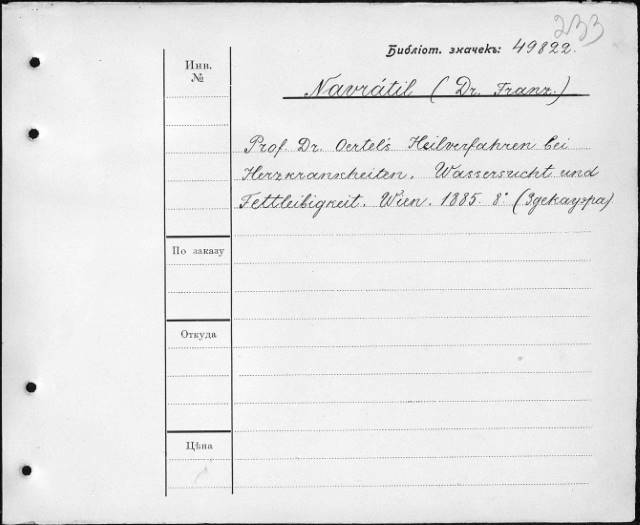 233
Библіот. значекъ: 49822.
Инв.
№
Navrátil (Dr. Franz.)
Prof. Dr. Oertel's Heilverfahren bei
Herzkranscheiten. Wassersucht und
Fettleibigkeit. Wien. 1885. 8° (Здекауэра)
По заказу
Откуда
Цѣна